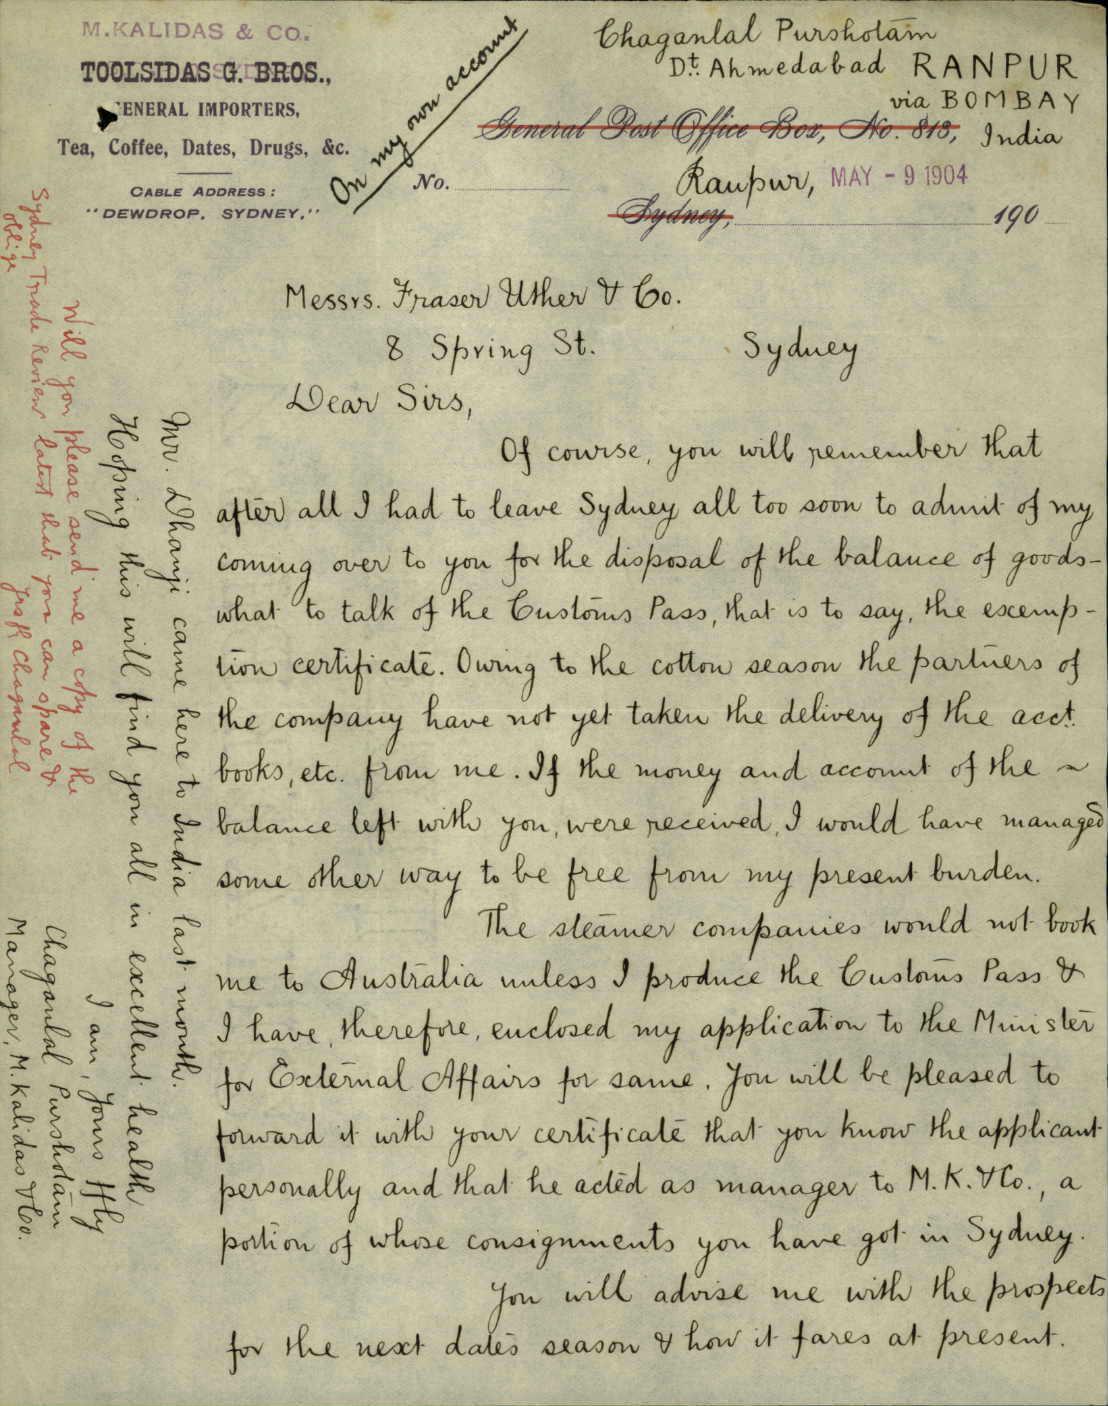 M. KALIDAS & CO.
TOOLSIDAS G. BROS.,
GENERAL IMPORTERS,
Tea, Coffee, Dates, Drugs, &c.
CABLE ADDRESS:
"DEWDROP. SYDNEY."
On my own account
Chaganlal Purshotam
Dt. Ahmedabad RANPUR
via BOMBAY
General Post Office Box, No. 813, India
No.
Ranpur, MAY - 9 1904
Sydney, 190
Messrs. Fraser Uther & Co.
8 Spring St. Sydney
Dear Sirs,
Of course, you will remember that
after all I had to leave Sydney all too soon to admit of my
coming over to you for the disposal of the balance of goods-
what to talk of the Customs Pass, that is to say, the exemp-
tion certificate. Owing to the cotton season the partners of
the company have not yet taken the delivery of the acct.
books, etc. from me. If the money and account of the ~
balance left with you, were received, I would have managed
some other way to be free from my present burden.
The steamer companies would not book
me to Australia unless I produce the Customs Pass &
I have, therefore, enclosed my application to the Minister
for External Affairs for same. You will be pleased to
forward it with your certificate that you know the applicant
personally and that he acted as manager to M. K. & Co., a
portion of whose consignments you have got in Sydney.
You will advise me with the prospects
for the next dates season & how it fares at present.
Mr. Dhanji came here to India last month.
Hoping this will find you all in excellent health
I am, Yours ffly
Chaganlal Purshotam
Manager, M. Kalidas & Co.
Will you please send me a copy of the
Sydney Trade Review latest that you can spare &
oblige
Yrs ffy Chaganlal